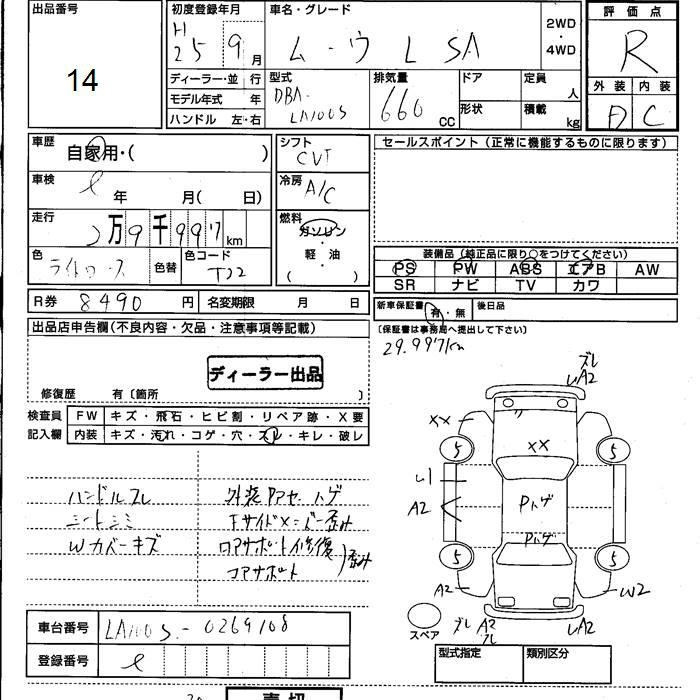 出品番号
14
初度登録年月
H25 9月
車名・グレード
ム-ヴ L SA
2WD・4WD
評価点
R
ディーラー・並行
モデル年式 年
ハンドル 左・右
型式
DBA-
LA100S
排気量
660 CC
ドア
形状
定員 人
積載 kg
外装 内装
D C
車歴
自家用・( )
車検
年 月( 日)
走行
2万9千997km
色
色替
色コード
T22
シフト
CVT
冷房
A/C
燃料
ガソリン
・
軽油
( )
セールスポイント(正常に機能するものに限ります)
装備品(純正品に限り○をつけてください)
PS PW ABS エアB AW
SR ナビ TV カワ
R券 8490 円
名変期限 月 日
新車保証書 有・無 後日品
(保証書は事務局へ提出して下さい)
29.997km
出品店申告欄(不良内容・欠品・注意事項等記載)
ディーラー出品
修復歴 有〔箇所 〕
検査員記入欄
FW キズ・飛石・ヒビ割・リペア跡・X要
内装 キズ・汚れ・コゲ・穴・スレ・キレ・破レ
ハンドルスレ
シートシミ
Wカバーキズ
外装Pアセ、トゲ
歪み
ロアサポート修復
コアサポート
歪み
ズレ
A2
XX
XX
5
5
A2
Pトゲ
Pトゲ
5
5
A2
W2
ズレ A2
A2
スペア
車台番号 LA100S-0269108
登録番号
型式指定 類別区分
売切